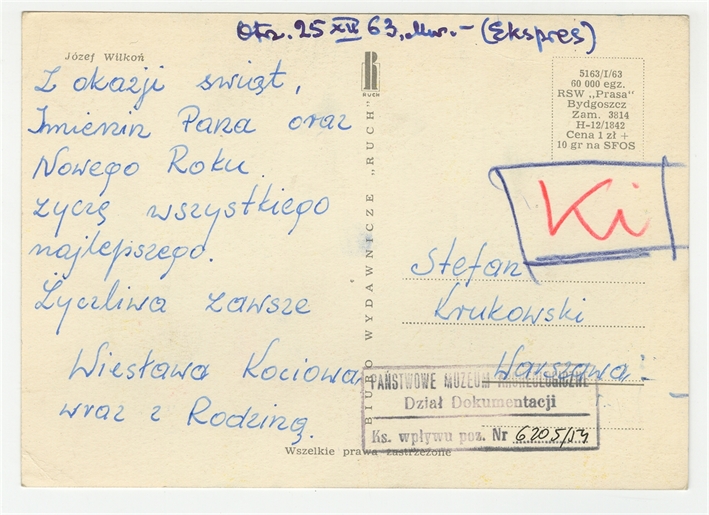 Otrz. 25 XII 63, Mw. - (Ekspres)
Józef Wilkoń
Z okazji świąt,
Imienin Pana oraz
Nowego Roku
życzę wszystkiego
najlepszego.
Życzliwa zawsze
Wiesława Kociowa
wraz z Rodziną.
R
RUCH
BIURO WYDAWNICZE „RUCH"
5163/I/63
60 000 egz.
RSW „Prasa"
Bydgoszcz
Zam. 3814
H-12/1842
Cena 1 zł +
10 gr na SFOS
Ki
Stefan
Krukowski
Warszawa
PAŃSTWOWE MUZEUM ARCHEOLOGICZNE
Dział Dokumentacji
Ks. wpływu poz. Nr 6205/
Wszelkie prawa zastrzeżone